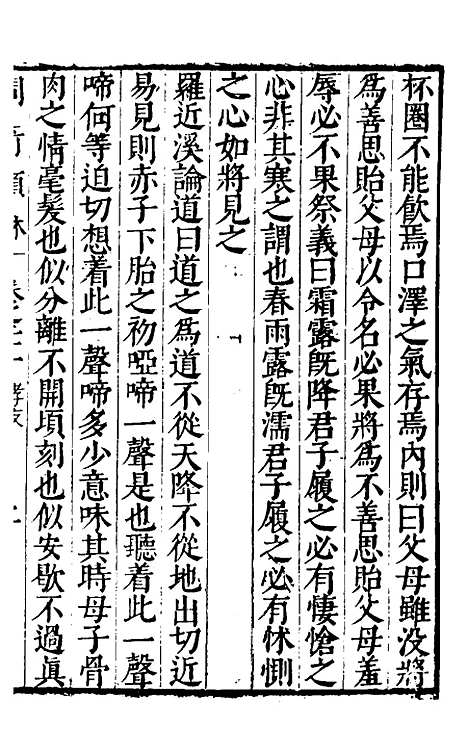 杯圈不能飲焉口澤之氣存焉內則曰父母雖没將
爲善思貽父母以令名必果將爲不善思貽父母羞
辱必不果祭義曰霜露旣降君子履之必有悽愴之
心非其寒之謂也春雨露旣濡君子履之必有怵惕
之心如將見之
羅近溪論道曰道之爲道不從天降不從地出切近
易見則赤子下胎之初啞啼一聲是也聽着此一聲
啼何等迫切想着此一聲啼多少意味其時母子骨
肉之情毫髮也似分離不開頃刻也似安歇不過眞